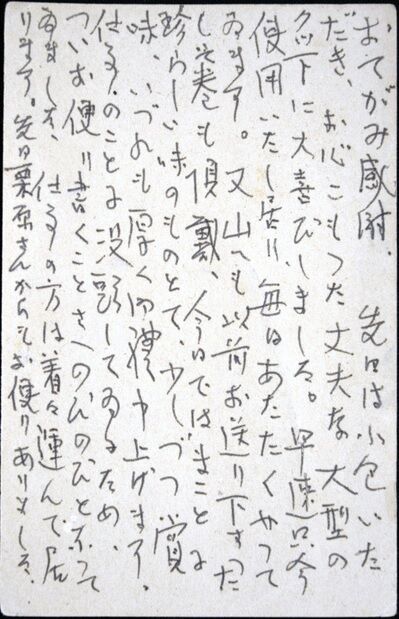 おてがみ感謝、先日は小包いた
だき、お心こもつた丈夫な大型の
下に大喜びしました。早速只今
使用いたし居り、毎日あたたくやつて
ゐます。又山へも以前お送り下すつた
し巻も頂戴、今日ではまことに
珍らしい味のものとて、少しづつ賞
味、いづれも厚く御礼申上げます。
仕事のことに没頭してゐるため、
ついお便り書くことさへのびのびとなつて
ゐましたが、仕事の方は着々運んで居
ります。先日栗原さんからもお便りありました。